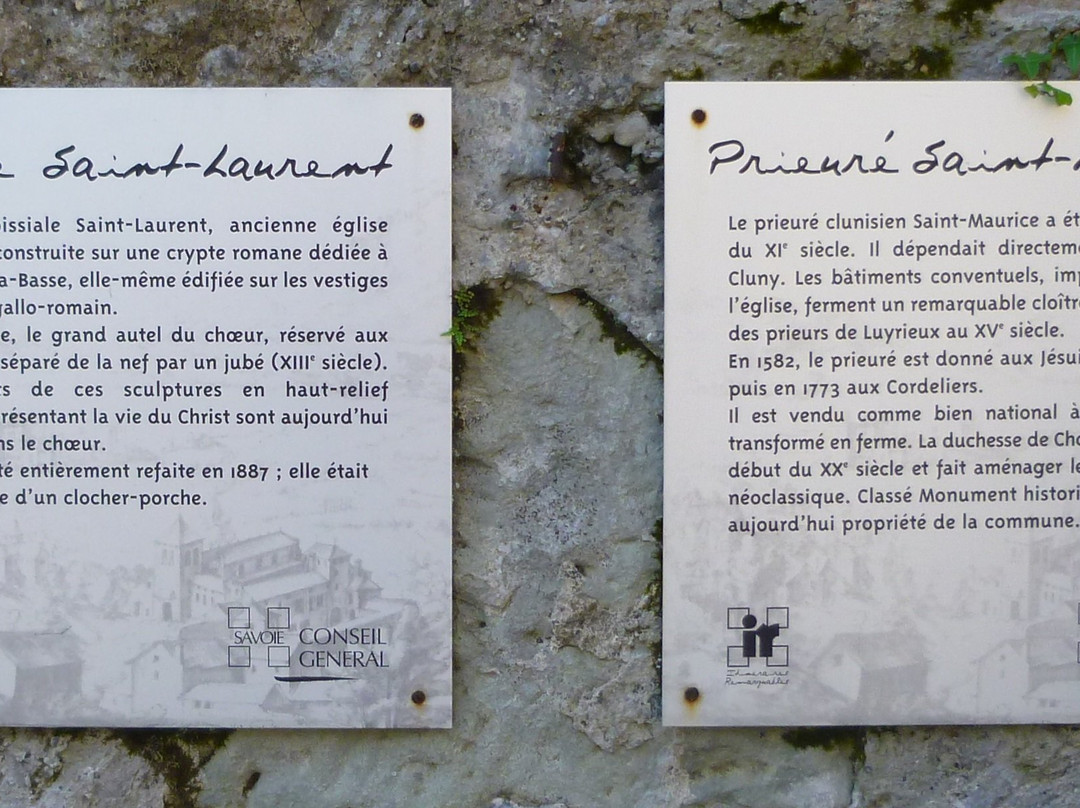 e Saint-Laurent
oissiale Saint-Laurent, ancienne église
construite sur une crypte romane dédiée à
a-Basse, elle-même édifiée sur les vestiges
gallo-romain.
e, le grand autel du chœur, réservé aux
séparé de la nef par un jubé (XIIIe siècle).
ts de ces sculptures en haut-relief
présentant la vie du Christ sont aujourd'hui
ns le chœur.
té entièrement refaite en 1887 ; elle était
e d'un clocher-porche.
SAVOIE CONSEIL
GENERAL
Prieuré Saint-
Le prieuré clunisien Saint-Maurice a ét
du XIe siècle. Il dépendait directeme
Cluny. Les bâtiments conventuels, imp
l'église, ferment un remarquable cloître
des prieurs de Luyrieux au XVe siècle.
En 1582, le prieuré est donné aux Jésui
puis en 1773 aux Cordeliers.
Il est vendu comme bien national à
transformé en ferme. La duchesse de Cho
début du XXe siècle et fait aménager le
néoclassique. Classé Monument histori
aujourd'hui propriété de la commune.
ir
Itinéraires
Remarquables